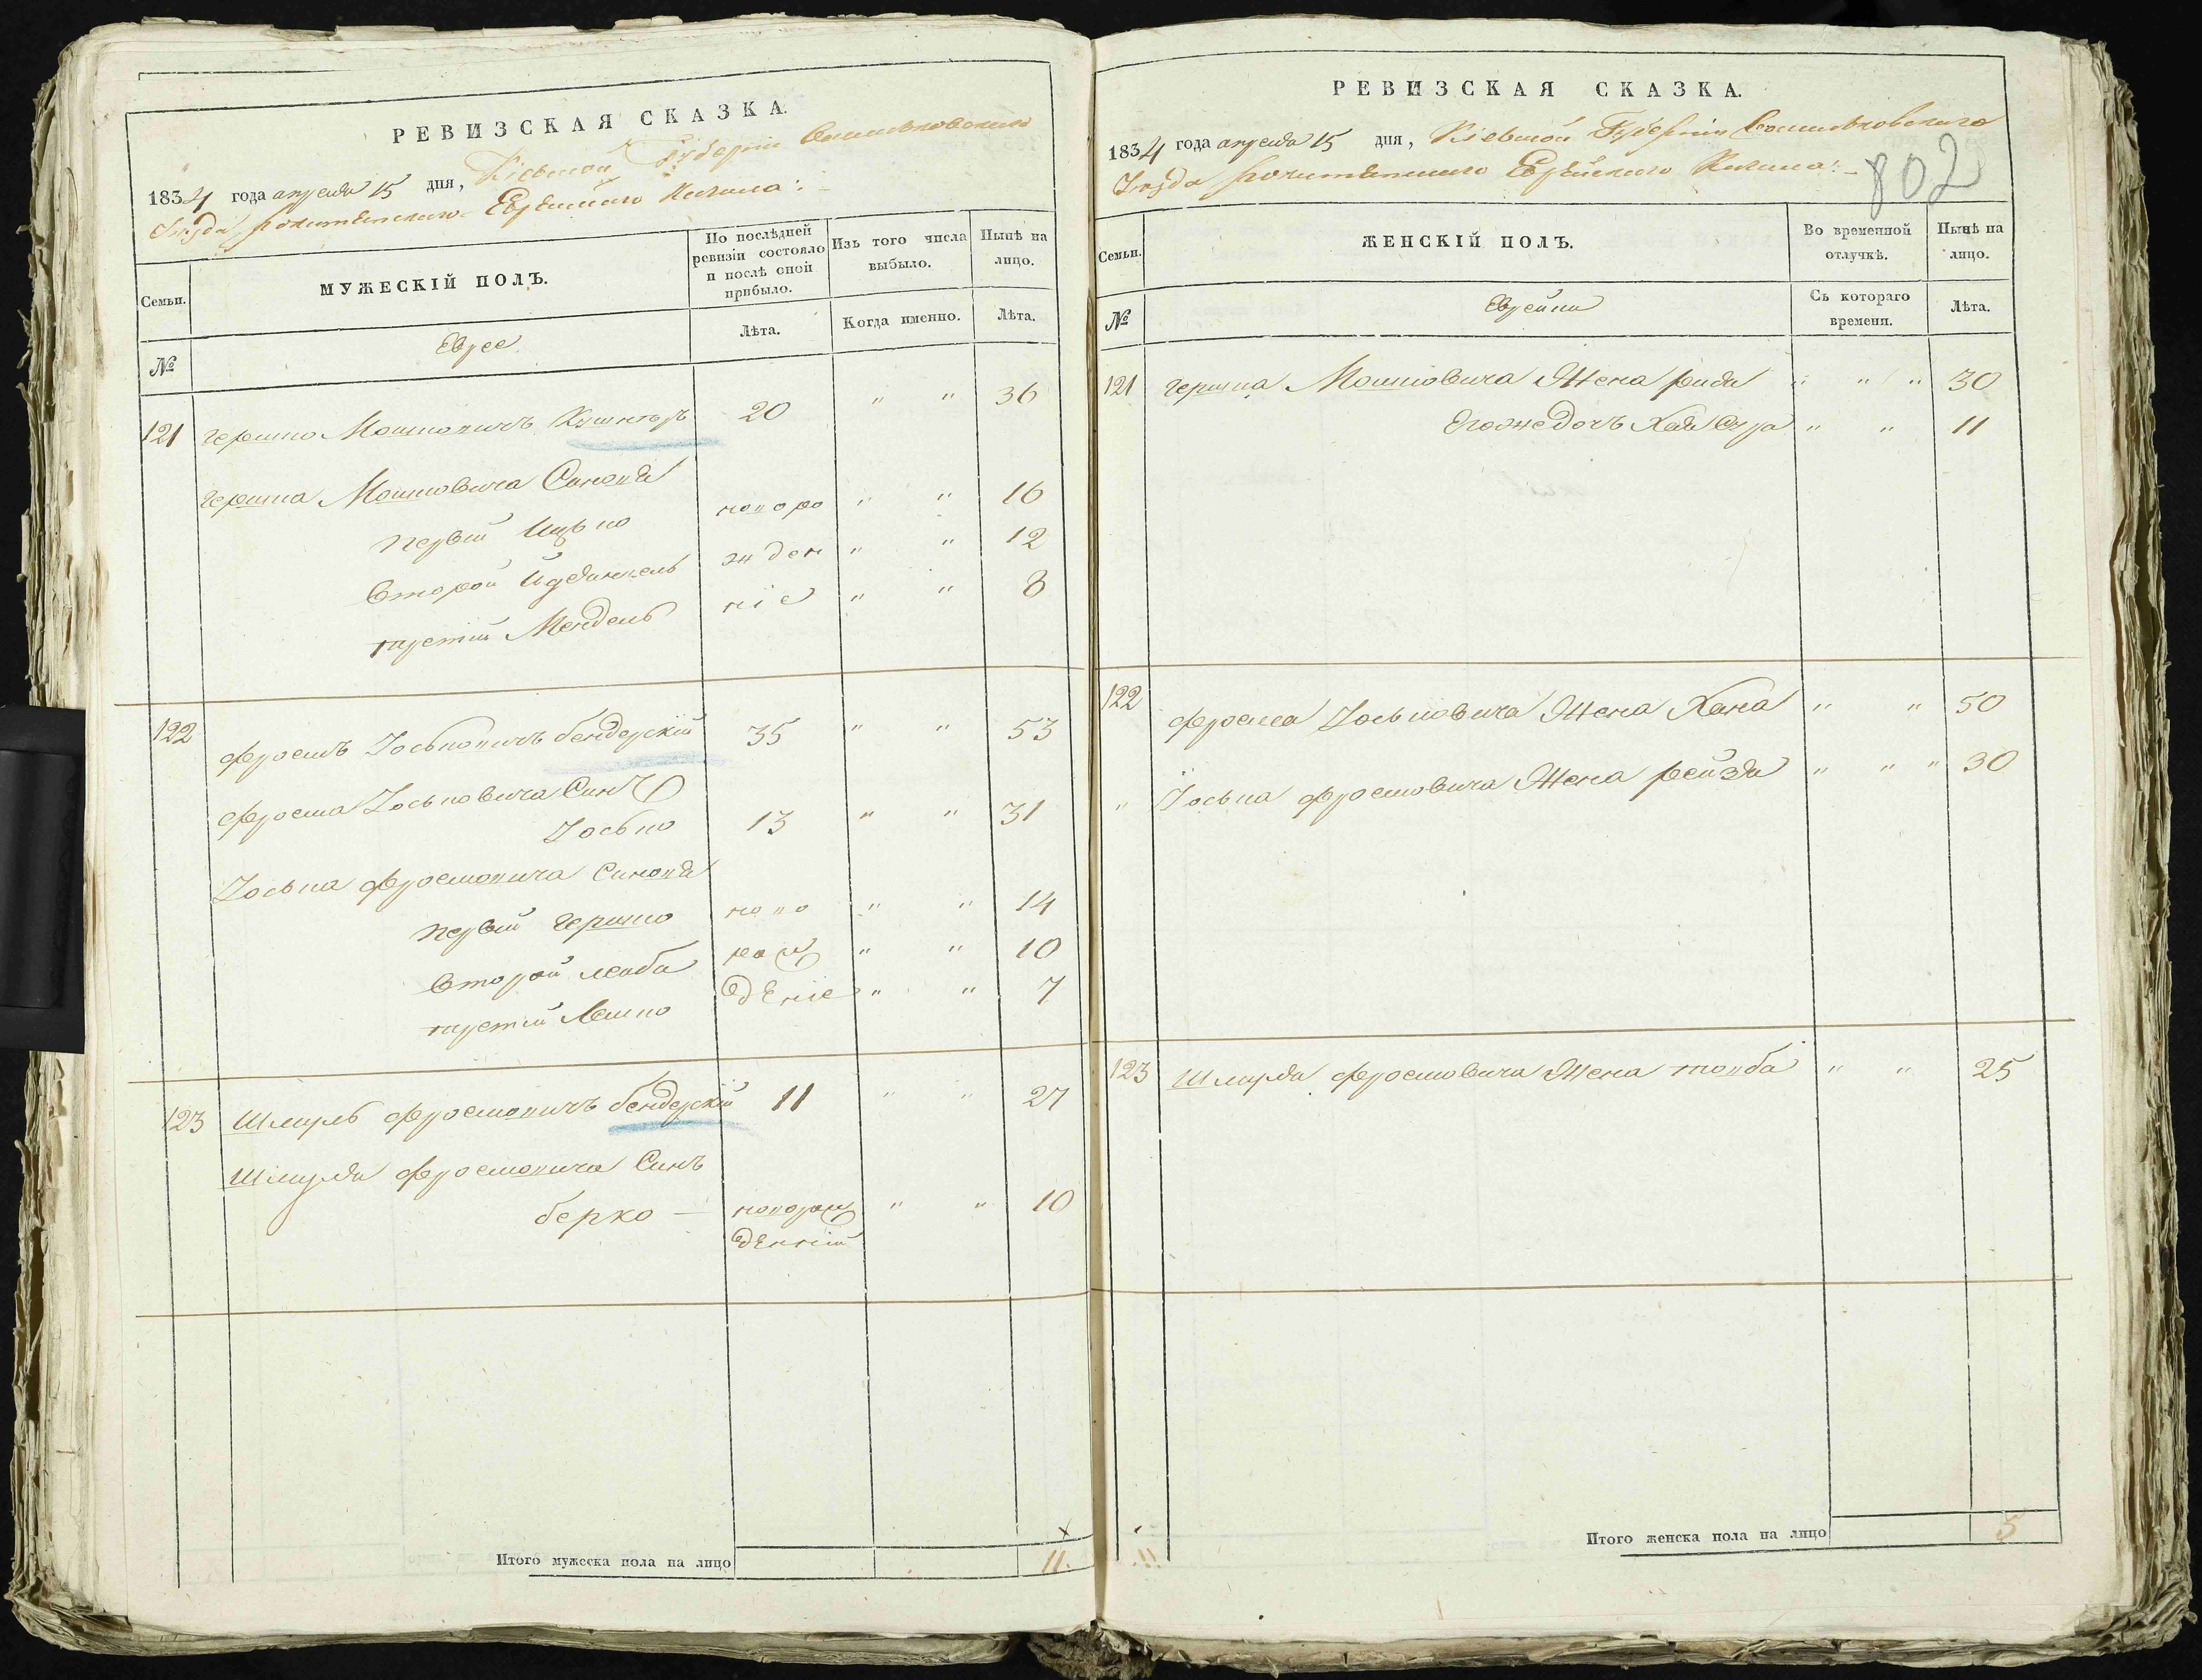 РЕВИЗСКАЯ СКАЗКА.
1834 года апреля 15 дня, Кіевской Губерніи Васильковского
Уезда Рокитянского Еврейского Кагала:
Семьи.
МУЖЕСКІЙ ПОЛЪ.
По послѣдней ревизіи состояло и послѣ оной прибыло.
Изъ того числа выбыло.
Нынѣ на лицо.
№
Еврее
Лѣта.
Когда именно.
Лѣта.
121 Гершко Мошковичъ Кушнеръ 20 " " 36
Гершка Мошковича Синовя
первий Ицько новоро " " 16
Второй жден " " 12
третий Мендель ніе " " 8
122 Фроимъ Іоськовичъ бендерскій 35 " " 53
Фроима Іоськовича Синъ
Іосько 13 " " 31
Іоська Фроимовича Синовя
первий Гершко ново " " 14
Второй лейба рож " " 10
третий деніе " " 7
123 Шмуль Фроимовичъ бендерскій 11 " " 27
Шмуля Фроимовича Синъ
берко — новорож " " 10
денній
Итого мужеска пола на лицо 11.
РЕВИЗСКАЯ СКАЗКА.
1834 года апреля 15 дня, Кіевской Губерніи Васильковского
Уезда Рокитянского Еврейского Кагала:
802
Семьи.
ЖЕНСКІЙ ПОЛЪ.
Во временной отлучкѣ.
Нынѣ на лицо.
№
Еврейки
Съ котораго времени.
Лѣта.
121 Гершка Мошковича Жена " " " 30
Егожедочъ Хая Сура " " 11
122 Фроима Іоськовича Жена Хана " " 50
" Іоська Фроимовича Жена рейзя " " " 30
123 Шмуля Фроимовича Жена товба " " 25
Итого женска пола на лицо 5